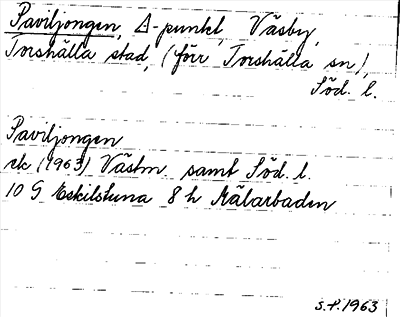 Paviljongen, Δ-punkt, Väsby,
Torshälla stad, (förr Torshälla sn),
Söd. l.
Paviljongen
ek (1963) Västm. samt Söd. l.
10 G Eskilstuna 8 h Mälarbaden
S.P. 1963